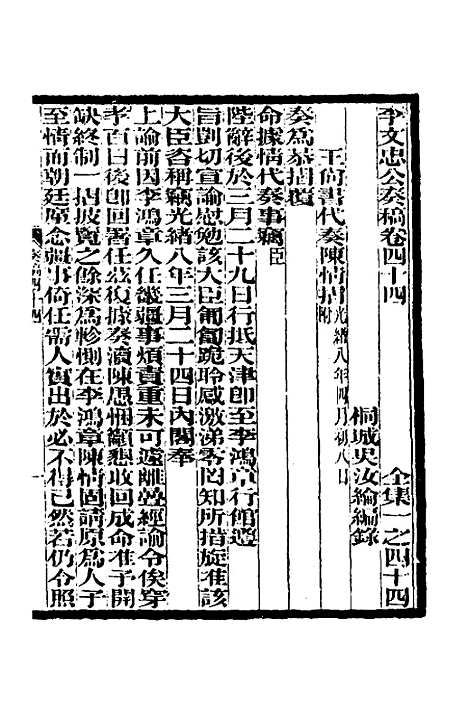 李文忠公奏稿卷四十四　全集一之四十四
桐城吳汝綸編錄
王尚書代奏陳情摺附　光緒八年四月初八日
奏爲恭摺覆
命據情代奏事竊臣
陛辭後於三月二十九日行抵天津卽至李鴻章行館遵
旨剴切宣諭慰勉該大臣匍匐跪聆感激涕零罔知所措旋准該
大臣咨稱竊光緒八年三月二十四日內閣奉
上諭前因李鴻章久任畿疆事煩責重未可遽離疊經諭令俟穿
孝百日後卽回署任茲復據奏瀝陳愚悃籲懇收回成命准予開
缺終制一摺披覽之餘深爲軫惻在李鴻章陳情固請原爲人子
至情而朝廷原念疆事倚任需人實出於必不得已然若仍令照
奏稿四十四
一